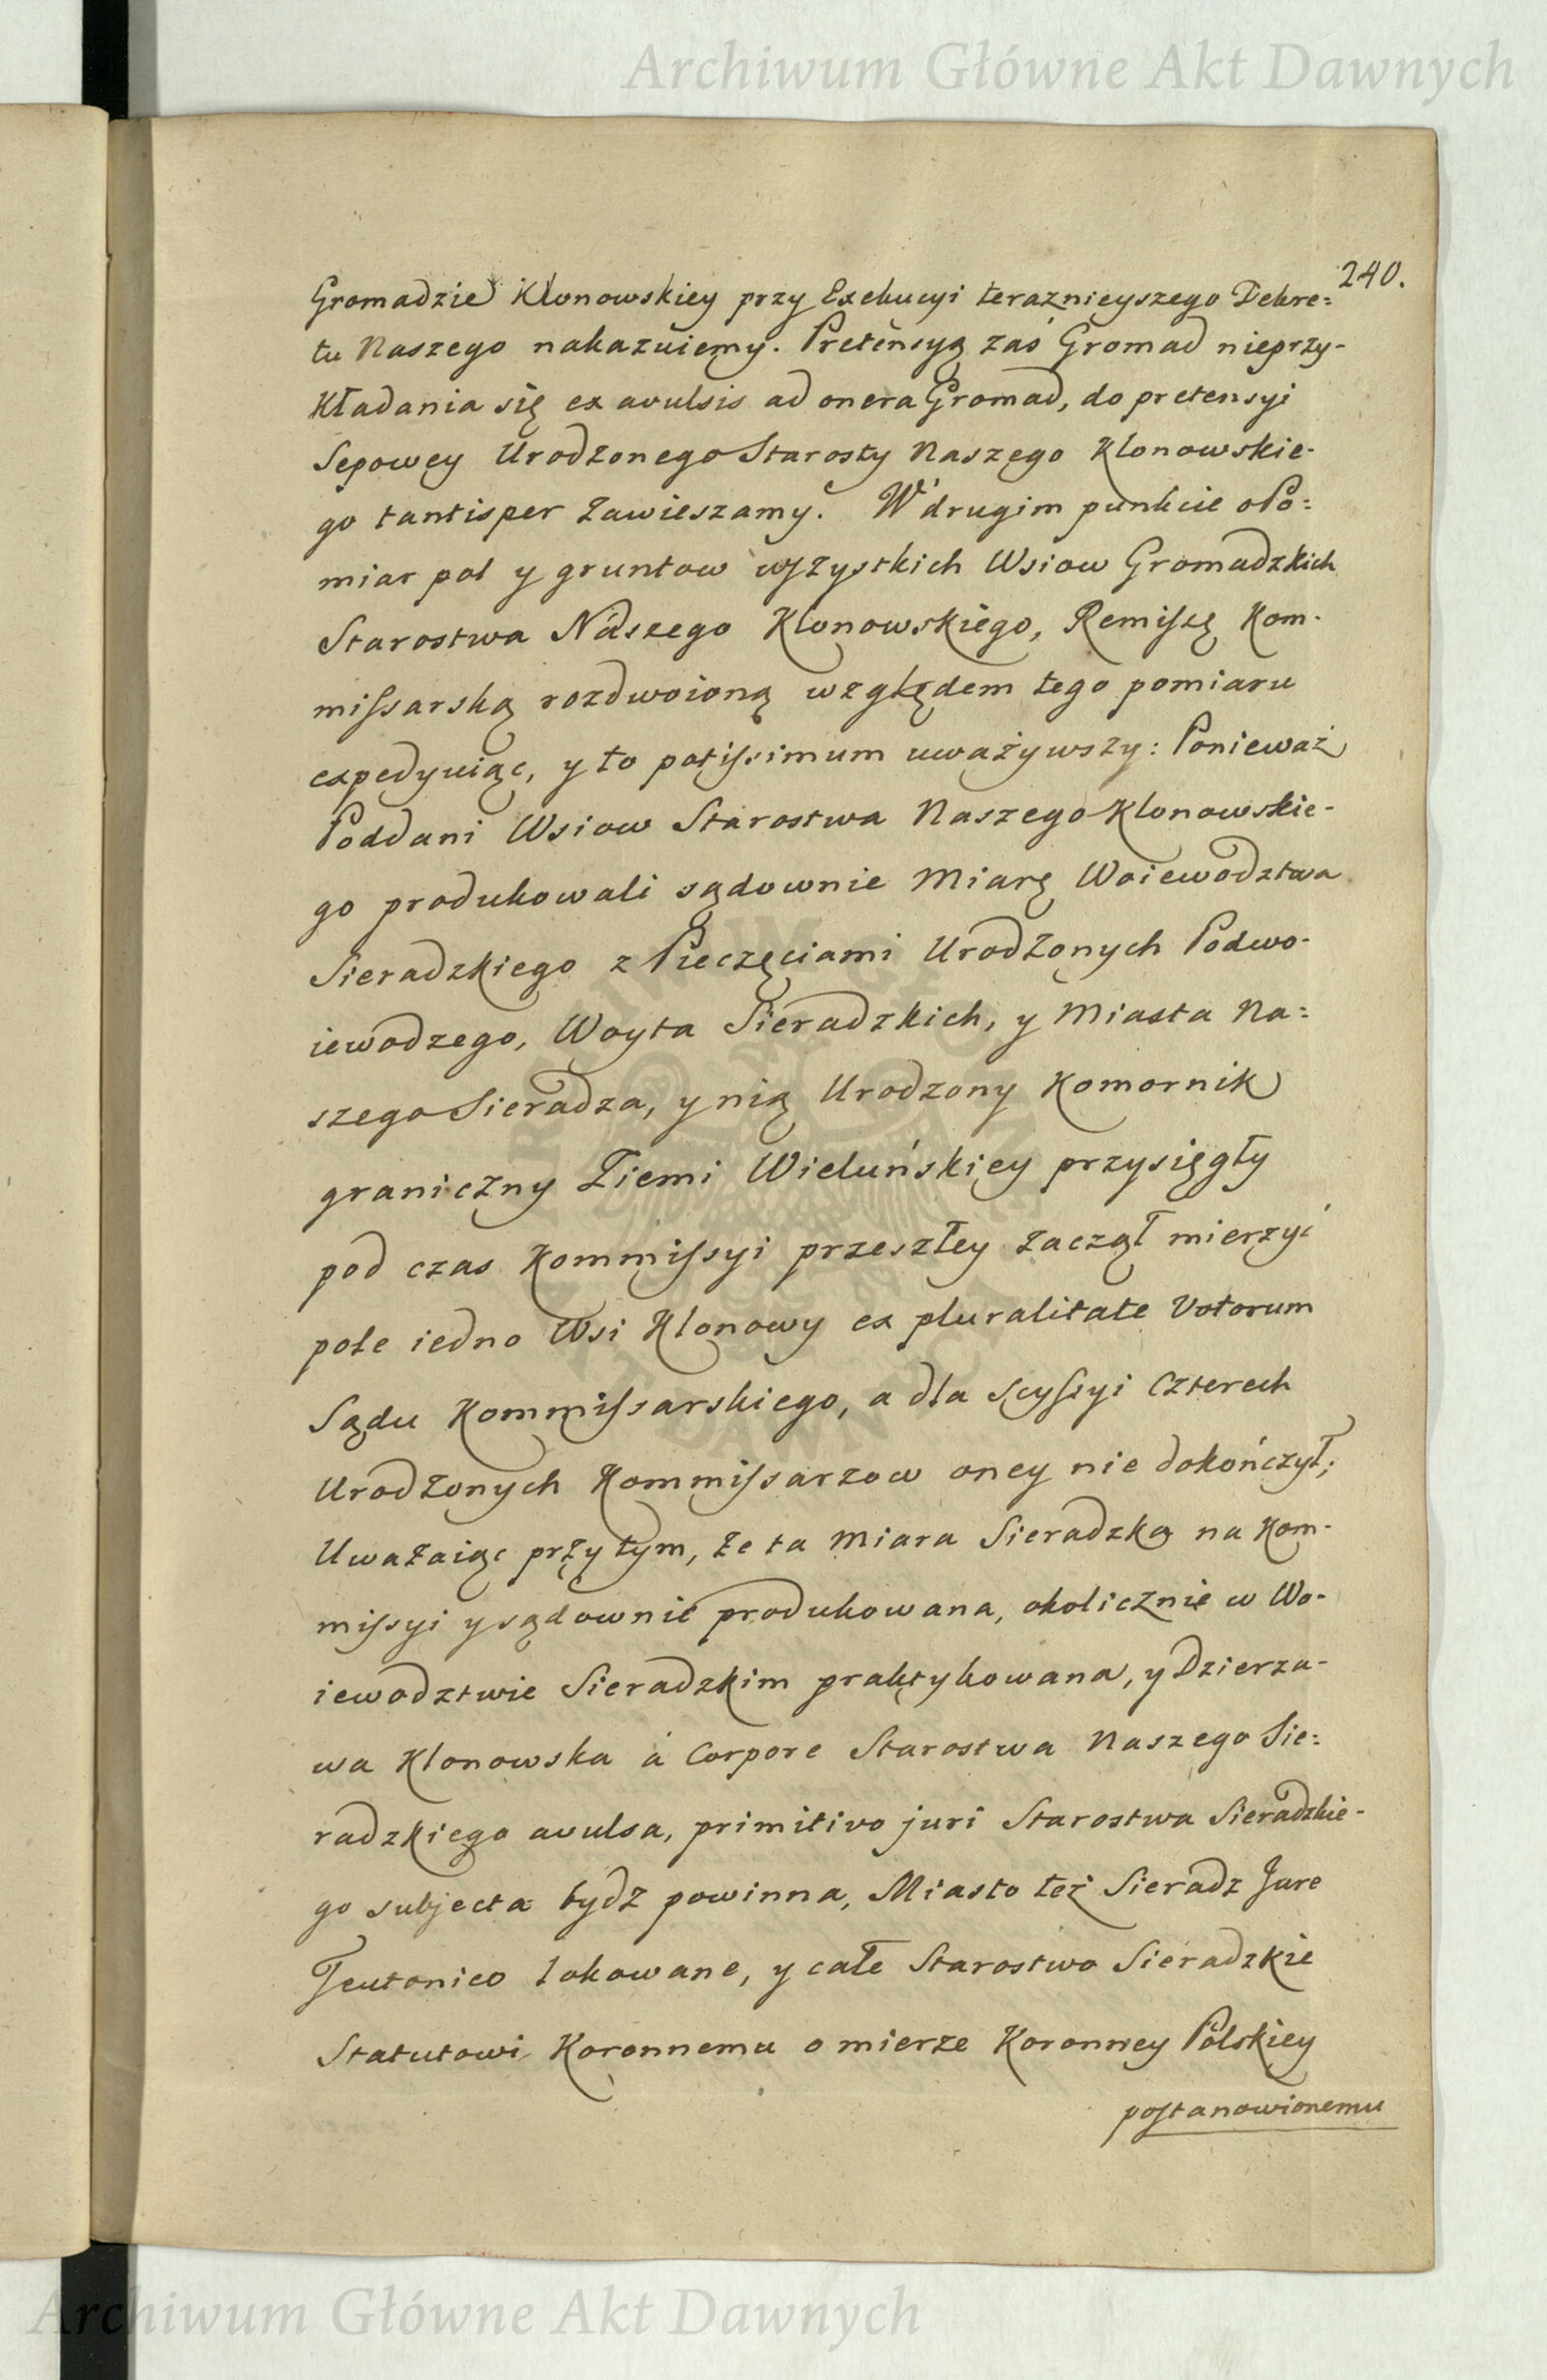 Archiwum Główne Akt Dawnych
240.
Gromadzie Klonowskiey przy Exekucyi teraznieyszego Dekre=
tu Naszego nakazuiemy. Pretensyą zaś Gromad nieprzy-
kładania się ex avulsis ad onera Gromad, do pretensyi
Sepowey Urodzonego Starosty Naszego Klonowskie-
go tantisper zawieszamy. W drugim punkcie o Po=
miar pol y gruntow wszystkich Wsiow Gromadzkich
Starostwa Naszego Klonowskiego, Remissę Kom-
missarską rozdwoioną względem tego pomiaru
expedyuiąc, y to potissimum uważywszy: Ponieważ
Poddani Wsiow Starostwa Naszego Klonowskie-
go produkowali sądownie Miarę Woiewodztwa
Sieradzkiego z Pieczęciami Urodzonych Podwo-
iewodzego, Woyta Sieradzkich, y Miasta Na=
szego Sieradza, y nią Urodzony Komornik
graniczny Ziemi Wieluńskiey przysięgły
pod czas Kommissyi przeszłey zaczął mierzyć
pole iedno Wsi Klonowy ex pluralitate Votorum
Sądu Kommissarskiego, a dla Scyssyi Czterech
Urodzonych Kommissarzow oney nie dokończył;
Uważaiąc przytym, że ta Miara Sieradzka na Kom-
missyi y sądownie produkowana, okolicznie w Wo-
iewodztwie Sieradzkim praktykowana, y Dzierza-
wa Klonowska á Corpore Starostwa Naszego Sie=
radzkiego avulsa, primitivo juri Starostwa Sieradzkie-
go subjecta bydz powinna, Miasto też Sieradz Jure
Teutonico lokowane, y całe Starostwo Sieradzkie
Statutowi Koronnemu o mierze Koronney Polskiey
postanowionemu
Archiwum Główne Akt Dawnych